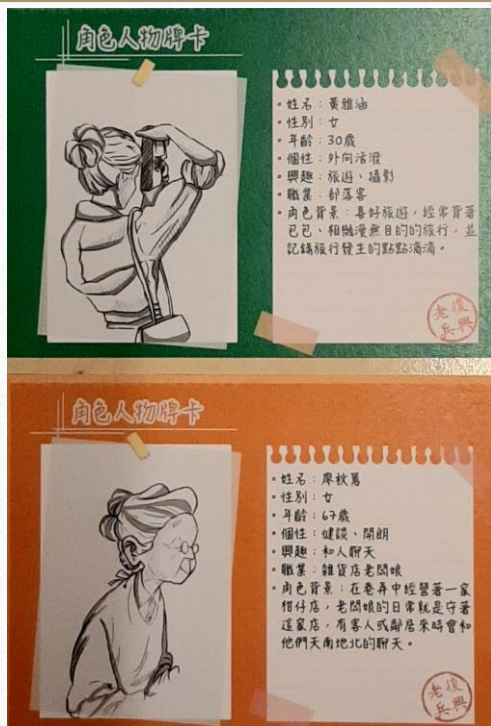 角色人物牌卡
• 姓名：黃雅油
• 性別：女
• 年齡：30歲
• 個性：外向活潑
• 興趣：旅遊、攝影
• 職業：部落客
• 角色背景：喜好旅遊，經常背著
包包、相機漫無目的的旅行，並
記錄旅行發生的點點滴滴。
老復
兵興
角色人物牌卡
• 姓名：廖秋蔦
• 性別：女
• 年齡：67歲
• 個性：健談、開朗
• 興趣：和人聊天
• 職業：雜貨店老闆娘
• 角色背景：在巷弄中經營著一家
柑仔店，老闆娘的日常就是守著
這家店，有客人或鄰居來時會和
他們天南地北的聊天。
老復
兵興